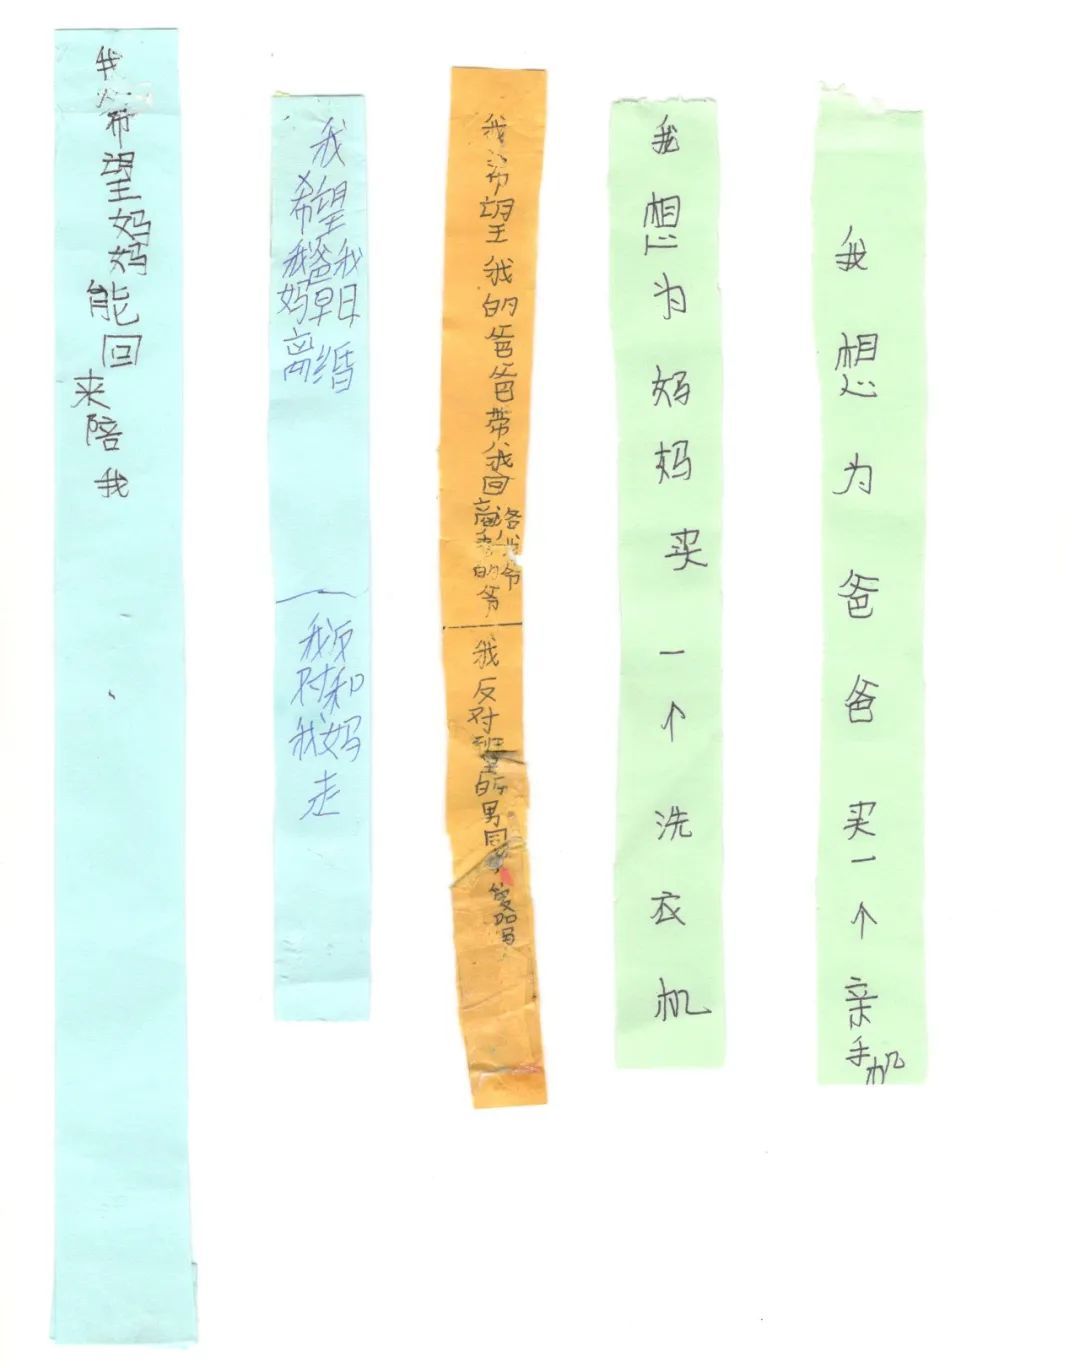 我希望妈妈能回来陪我
我希望我爸我妈早日离婚
我反对和我妈走
我希望我的爸爸带我回商洛看我的爷爷
我反对班里的男同
我想为妈妈买一个洗衣机
我想为爸爸买一个亲手机